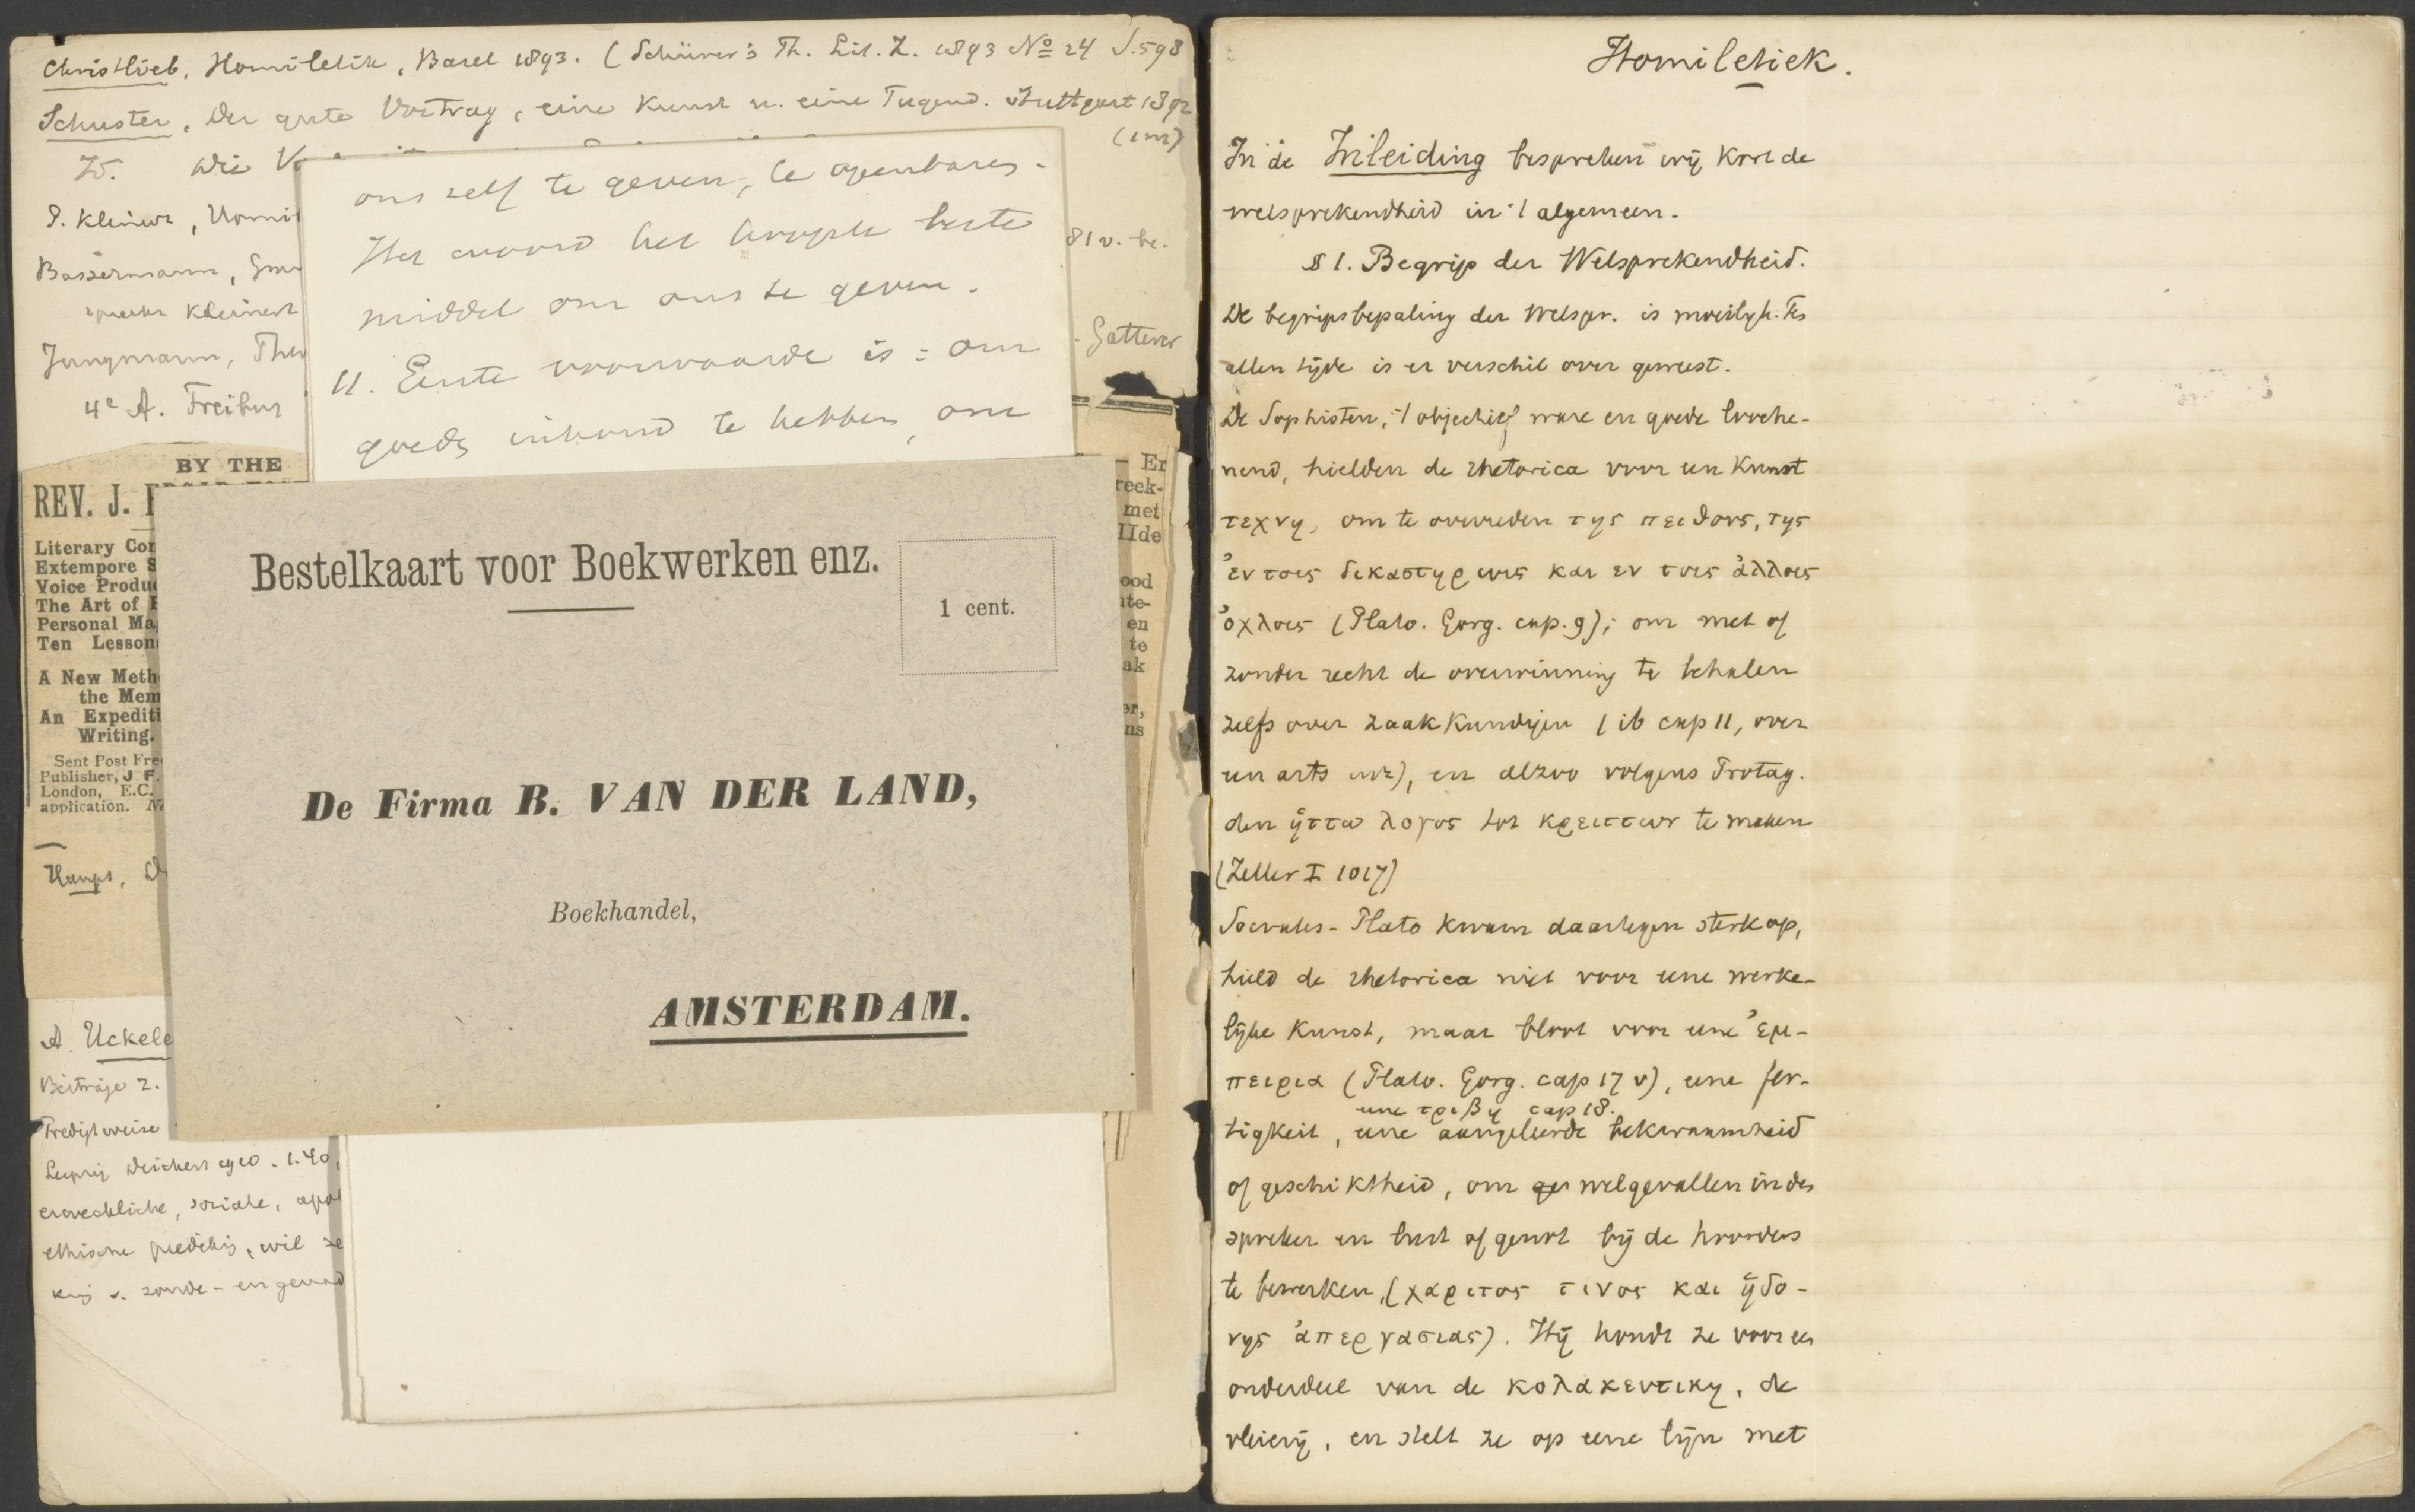 Christlieb, Homiletik, Basel 1893. (Schürer's Th. Lit. Z. 1893 No 24 S. 598
Schuster, Der gute Vortrag, eine Kunst u. eine Tugend. Stuttgart 1892
Wie
P. Kleinert,
Bassermann,
Kleinert
Jungmann,
4e A. Freibur
81 v. be.
ons zelf te geven, te openbaren.
Het woord het hoogste beste
middel om ons te geven.
11. Eerste voorwaarde is: om
goeds inhoud te hebben, om
BY THE
REV. J.
Literary Cor
Extempore S
Voice Produ
The Art of
Personal Ma
Ten Lesson
A New Meth
the Mem
An Expediti
Writing.
Sent Post Fre
Publisher, J F.
London, E.C.
application.
Haupt, D
— Er
reek-
met
IIde
ood
te-
en
te
ak
er,
ns
Bestelkaart voor Boekwerken enz.
1 cent.
De Firma B. VAN DER LAND,
Boekhandel,
AMSTERDAM.
A. Uckele
Beiträge z.
Predigtweise
Leipzig Deichert 1910. 1.40,
erweckliche, soziale, apol
ethische prediking, wil
king v. zonde- en genad
Homiletiek.
In de Inleiding bespreken wij kort de
welsprekendheid in 't algemeen.
§ 1. Begrip der Welsprekendheid.
De begripsbepaling der Welspr. is moeilijk. Te
allen tijde is er verschil over geweest.
De Sophisten, 't objectief ware en goede looche-
nend, hielden de rhetorica voor een Kunst
τεχνη, om te overreden της πειθους, της
ἐν τοις δικαστηριοις και εν τοις ἀλλοις
ὀχλοις (Plato. Gorg. cap. 9); om met of
zonder recht de overwinning te behalen
zelfs over zaakkundigen (ib cap 11, over
een arts enz), en alzoo volgens Protag.
den ἡττω λογος tot κρειττων te maken
(Zeller I 1017)
Socrates-Plato kwam daartegen sterk op,
hield de rhetorica niet voor eene werke-
lijke Kunst, maar bloot voor eene ἐμ-
πειρια (Plato. Gorg. cap 17 v), eene fer-
eene τριβη cap 18.
tigkeit, eene aangeleerde bekwaamheid
of geschiktheid, om welgevallen in den
spreker en lust of genot bij de hoorders
te bewerken, (χαριτος τινος και ἡδο-
νης ἀπεργασιας). Hij houdt ze voor een
onderdeel van de κολακευτικη, de
vleierij, en stelt ze op eene lijn met